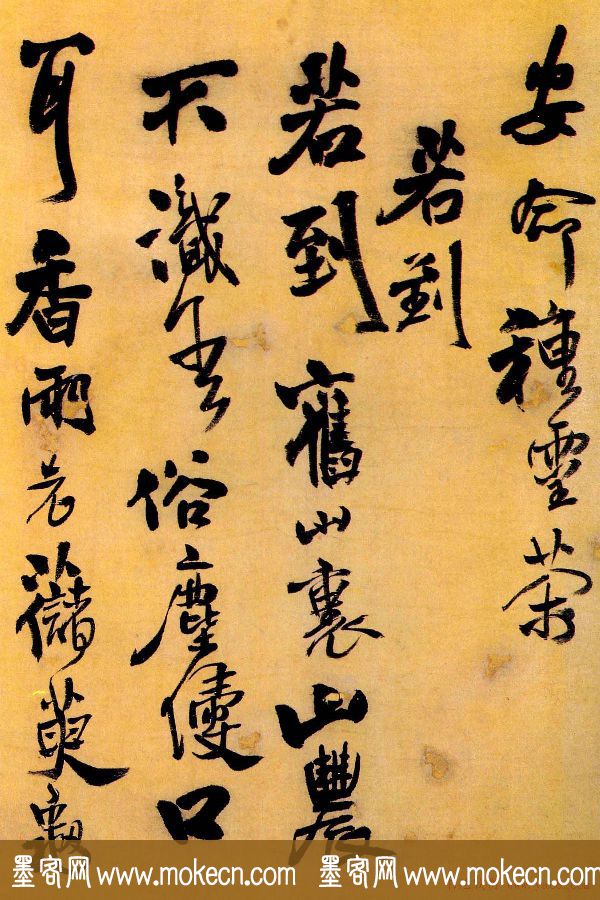 安命種靈
若到
若到舊山裏山農
不識吾俗塵侵口
耳香雨
墨客网 www.mokecn.com 墨客网 www.mokecn.com